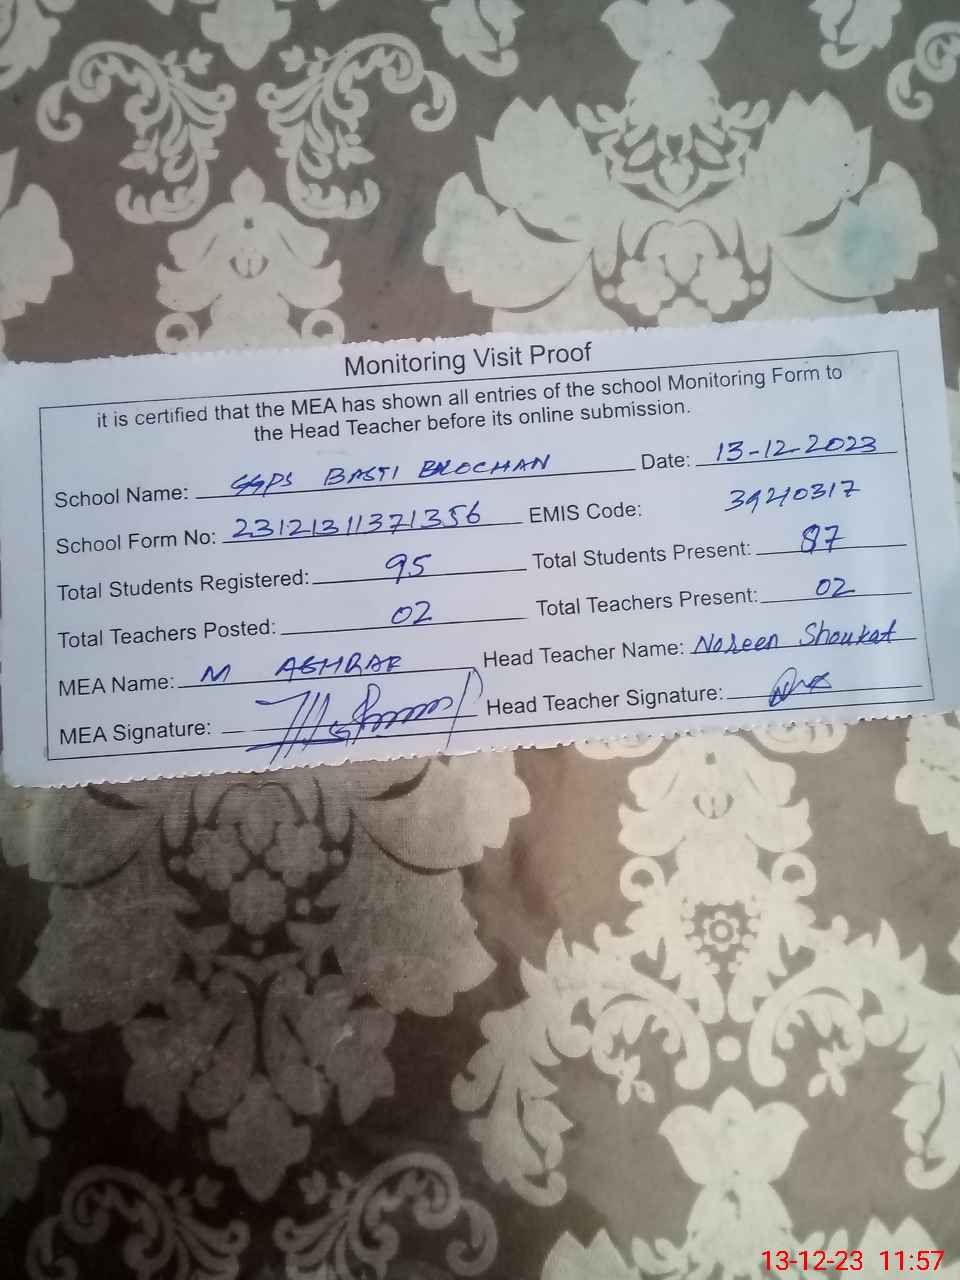 Monitoring Visit Proof
it is certified that the MEA has shown all entries of the school Monitoring Form to
the Head Teacher before its online submission.
School Name: GGPS BASTI BLOCHAN Date: 13-12-2023
School Form No: 23121311371356 EMIS Code: 39240317
Total Students Registered: 95 Total Students Present: 87
Total Teachers Posted: 02 Total Teachers Present: 02
MEA Name: M ASHRAF Head Teacher Name: Noreen Shoukat
MEA Signature: Head Teacher Signature:
13-12-23 11:57